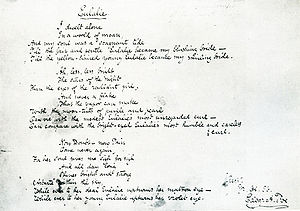 Eulalie
I dwelt alone
In a world of moan,
And my soul was a stagnant tide
Till the fair and gentle Eulalie became my blushing bride —
Till the yellow-haired young Eulalie became my smiling bride.
Ah, less, less bright
The stars of the night
Than the eyes of the radiant girl,
And never a flake
That the vapor can make
With the moon-tints of purple and pearl
Can vie with the modest Eulalie's most unregarded curl —
Can compare with the bright-eyed Eulalie's most humble and careless
curl.
Now Doubt — now Pain
Come never again,
For her soul gives me sigh for sigh
And all day long
Shines bright and strong
Astarté within the sky,
While ever to her dear Eulalie upturns her matron eye —
While ever to her young Eulalie upturns her violet eye.
Edgar A. Poe